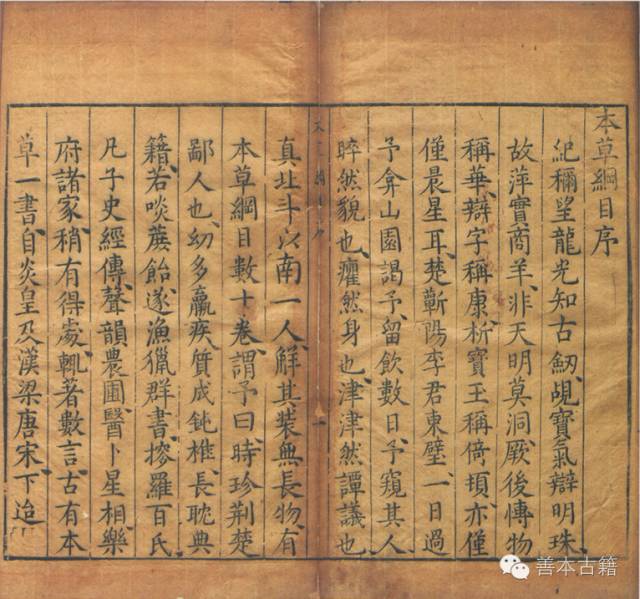 本草綱目序
紀稱望龍光知古劒覘寶氣辯明珠
故萍實商羊非天明莫洞厥後慱物
稱華辯字稱康析寶玉稱倚頓亦僅
僅晨星耳楚蘄陽李君東璧一日過
予弇山園謁予留飲數日予窺其人
睟然貌也癯然身也津津然譚議也
真北斗以南一人觧其装無長物有
本草綱目數十卷謂予曰時珍荆楚
鄙人也幼多羸疾質成鈍椎長耽典
籍若啖蔗飴遂漁獵群書搜羅百氏
凡子史經傳聲韻農圃醫卜星相樂
府諸家稍有得處輙著數言古有本
草一書自炎皇及漢梁唐宋下迨
善本古籍